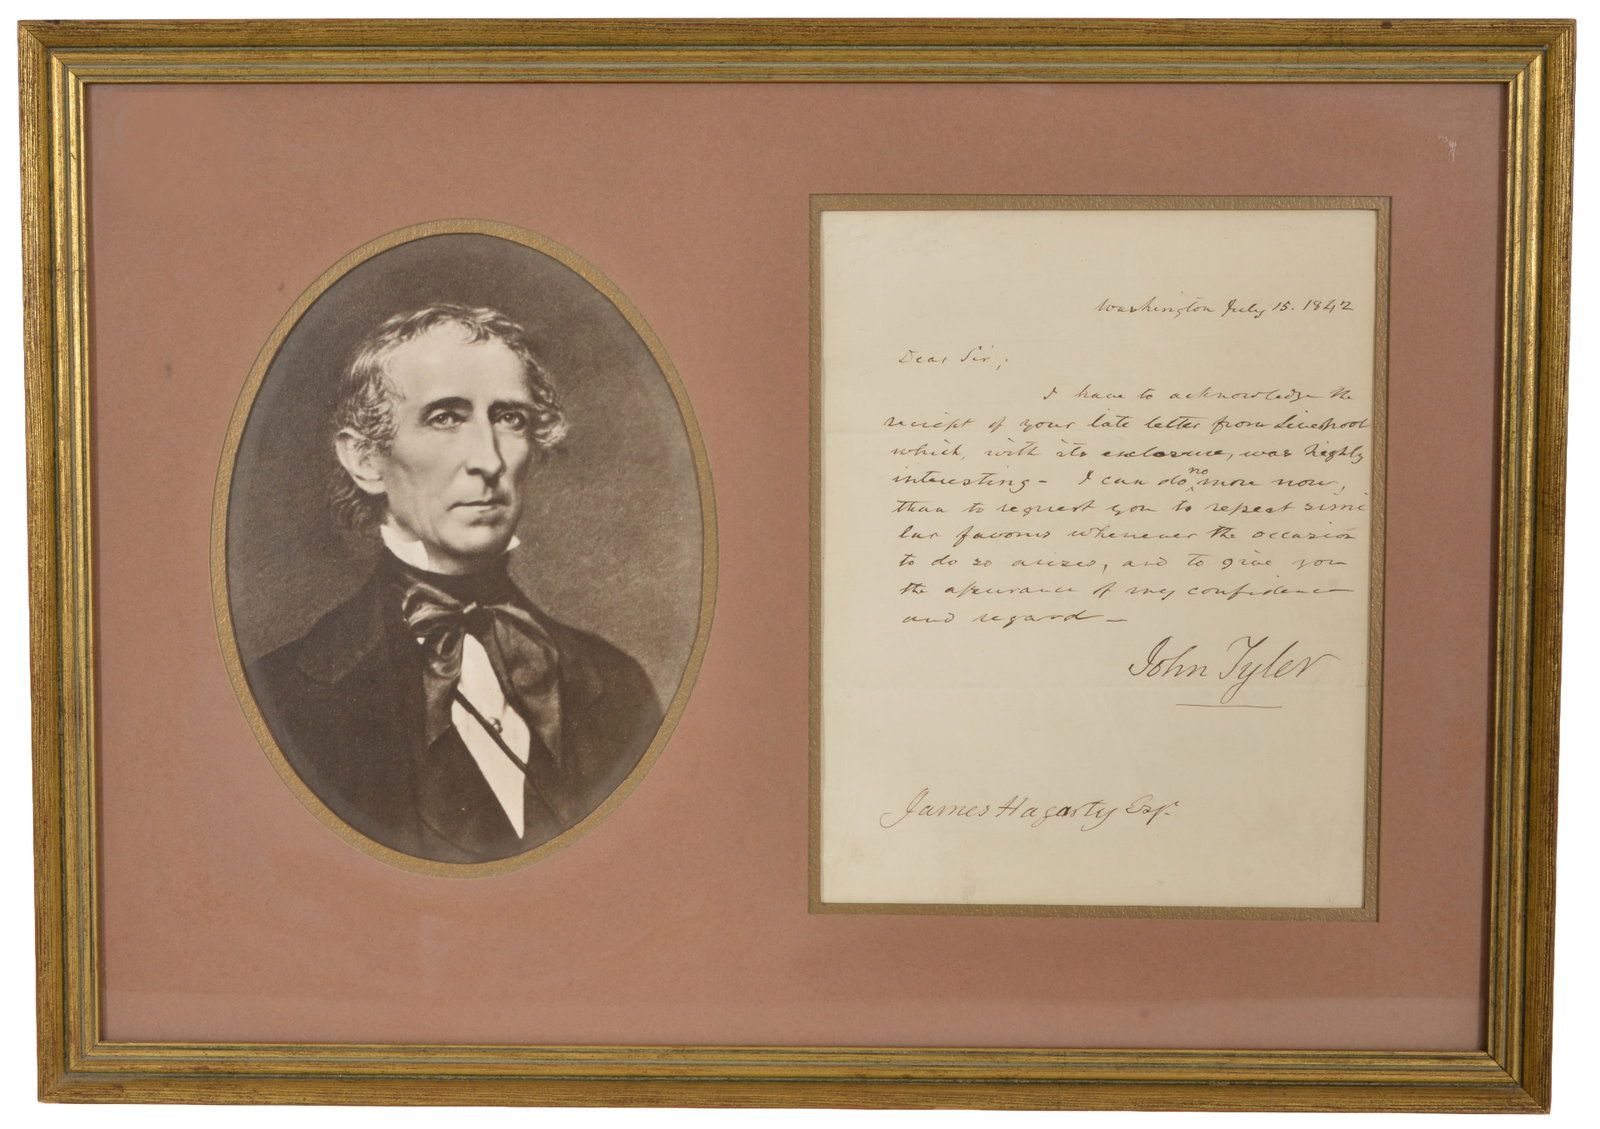 Washington July 15. 1842
Dear Sir;
I have to acknowledge the
reciept of your late letter from Liverpool
which, with its enclosure, was highly
interesting - I can do no more now,
than to request you to repeat simi
lar favours whenever the occasion
to do so arises, and to give you
the assurance of my confidence
and regard -
John Tyler
James Hagarty Esqr.